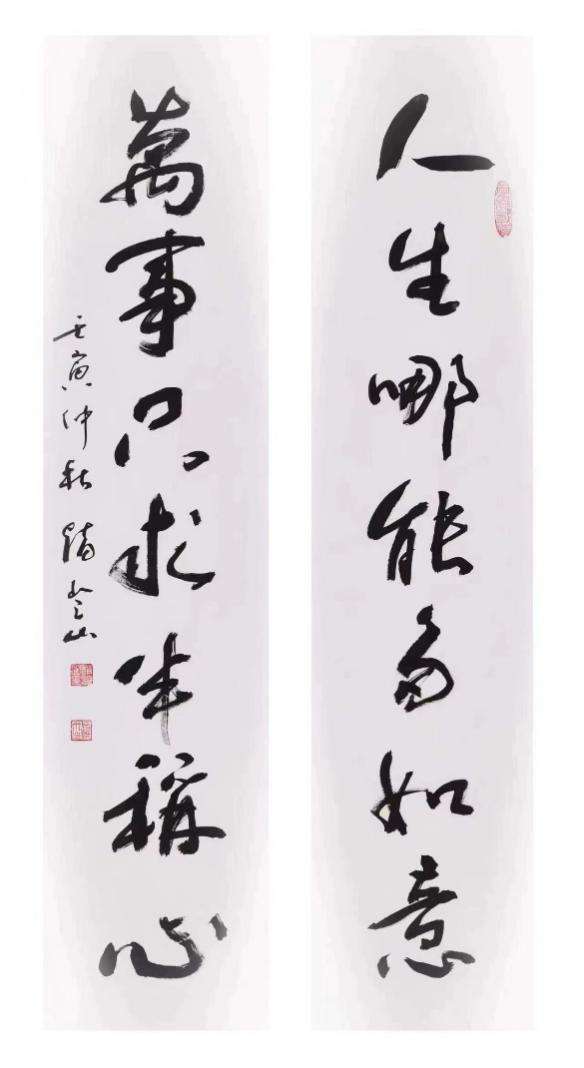 人生哪能多如意
萬事只求半稱心
壬寅仲秋